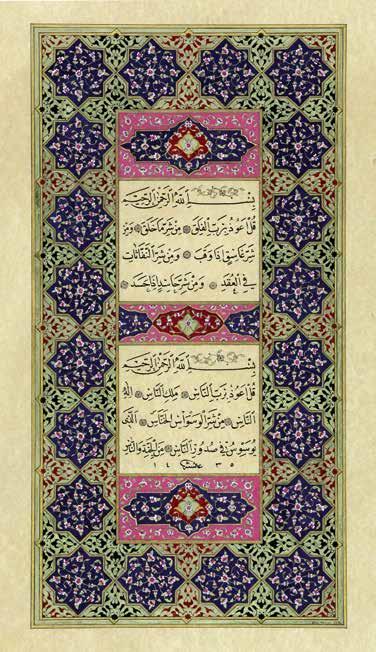 بِسْمِ اللّٰهِ الرَّحْمٰنِ الرَّحِيمِ
قُلْ اَعُوذُ بِرَبِّ الْفَلَقِ ۞ مِنْ شَرِّ مَا خَلَقَ ۞ وَمِنْ
شَرِّ غَاسِقٍ اِذَا وَقَبَ ۞ وَمِنْ شَرِّ النَّفَّاثَاتِ
فِى الْعُقَدِ ۞ وَمِنْ شَرِّ حَاسِدٍ اِذَا حَسَدَ ۞
بِسْمِ اللّٰهِ الرَّحْمٰنِ الرَّحِيمِ
قُلْ اَعُوذُ بِرَبِّ النَّاسِ ۞ مَلِكِ النَّاسِ ۞ اِلٰهِ
النَّاسِ ۞ مِنْ شَرِّ الْوَسْوَاسِ الْخَنَّاسِ ۞ اَلَّذِى
يُوَسْوِسُ فِى صُدُورِ النَّاسِ ۞ مِنَ الْجِنَّةِ وَالنَّاسِ